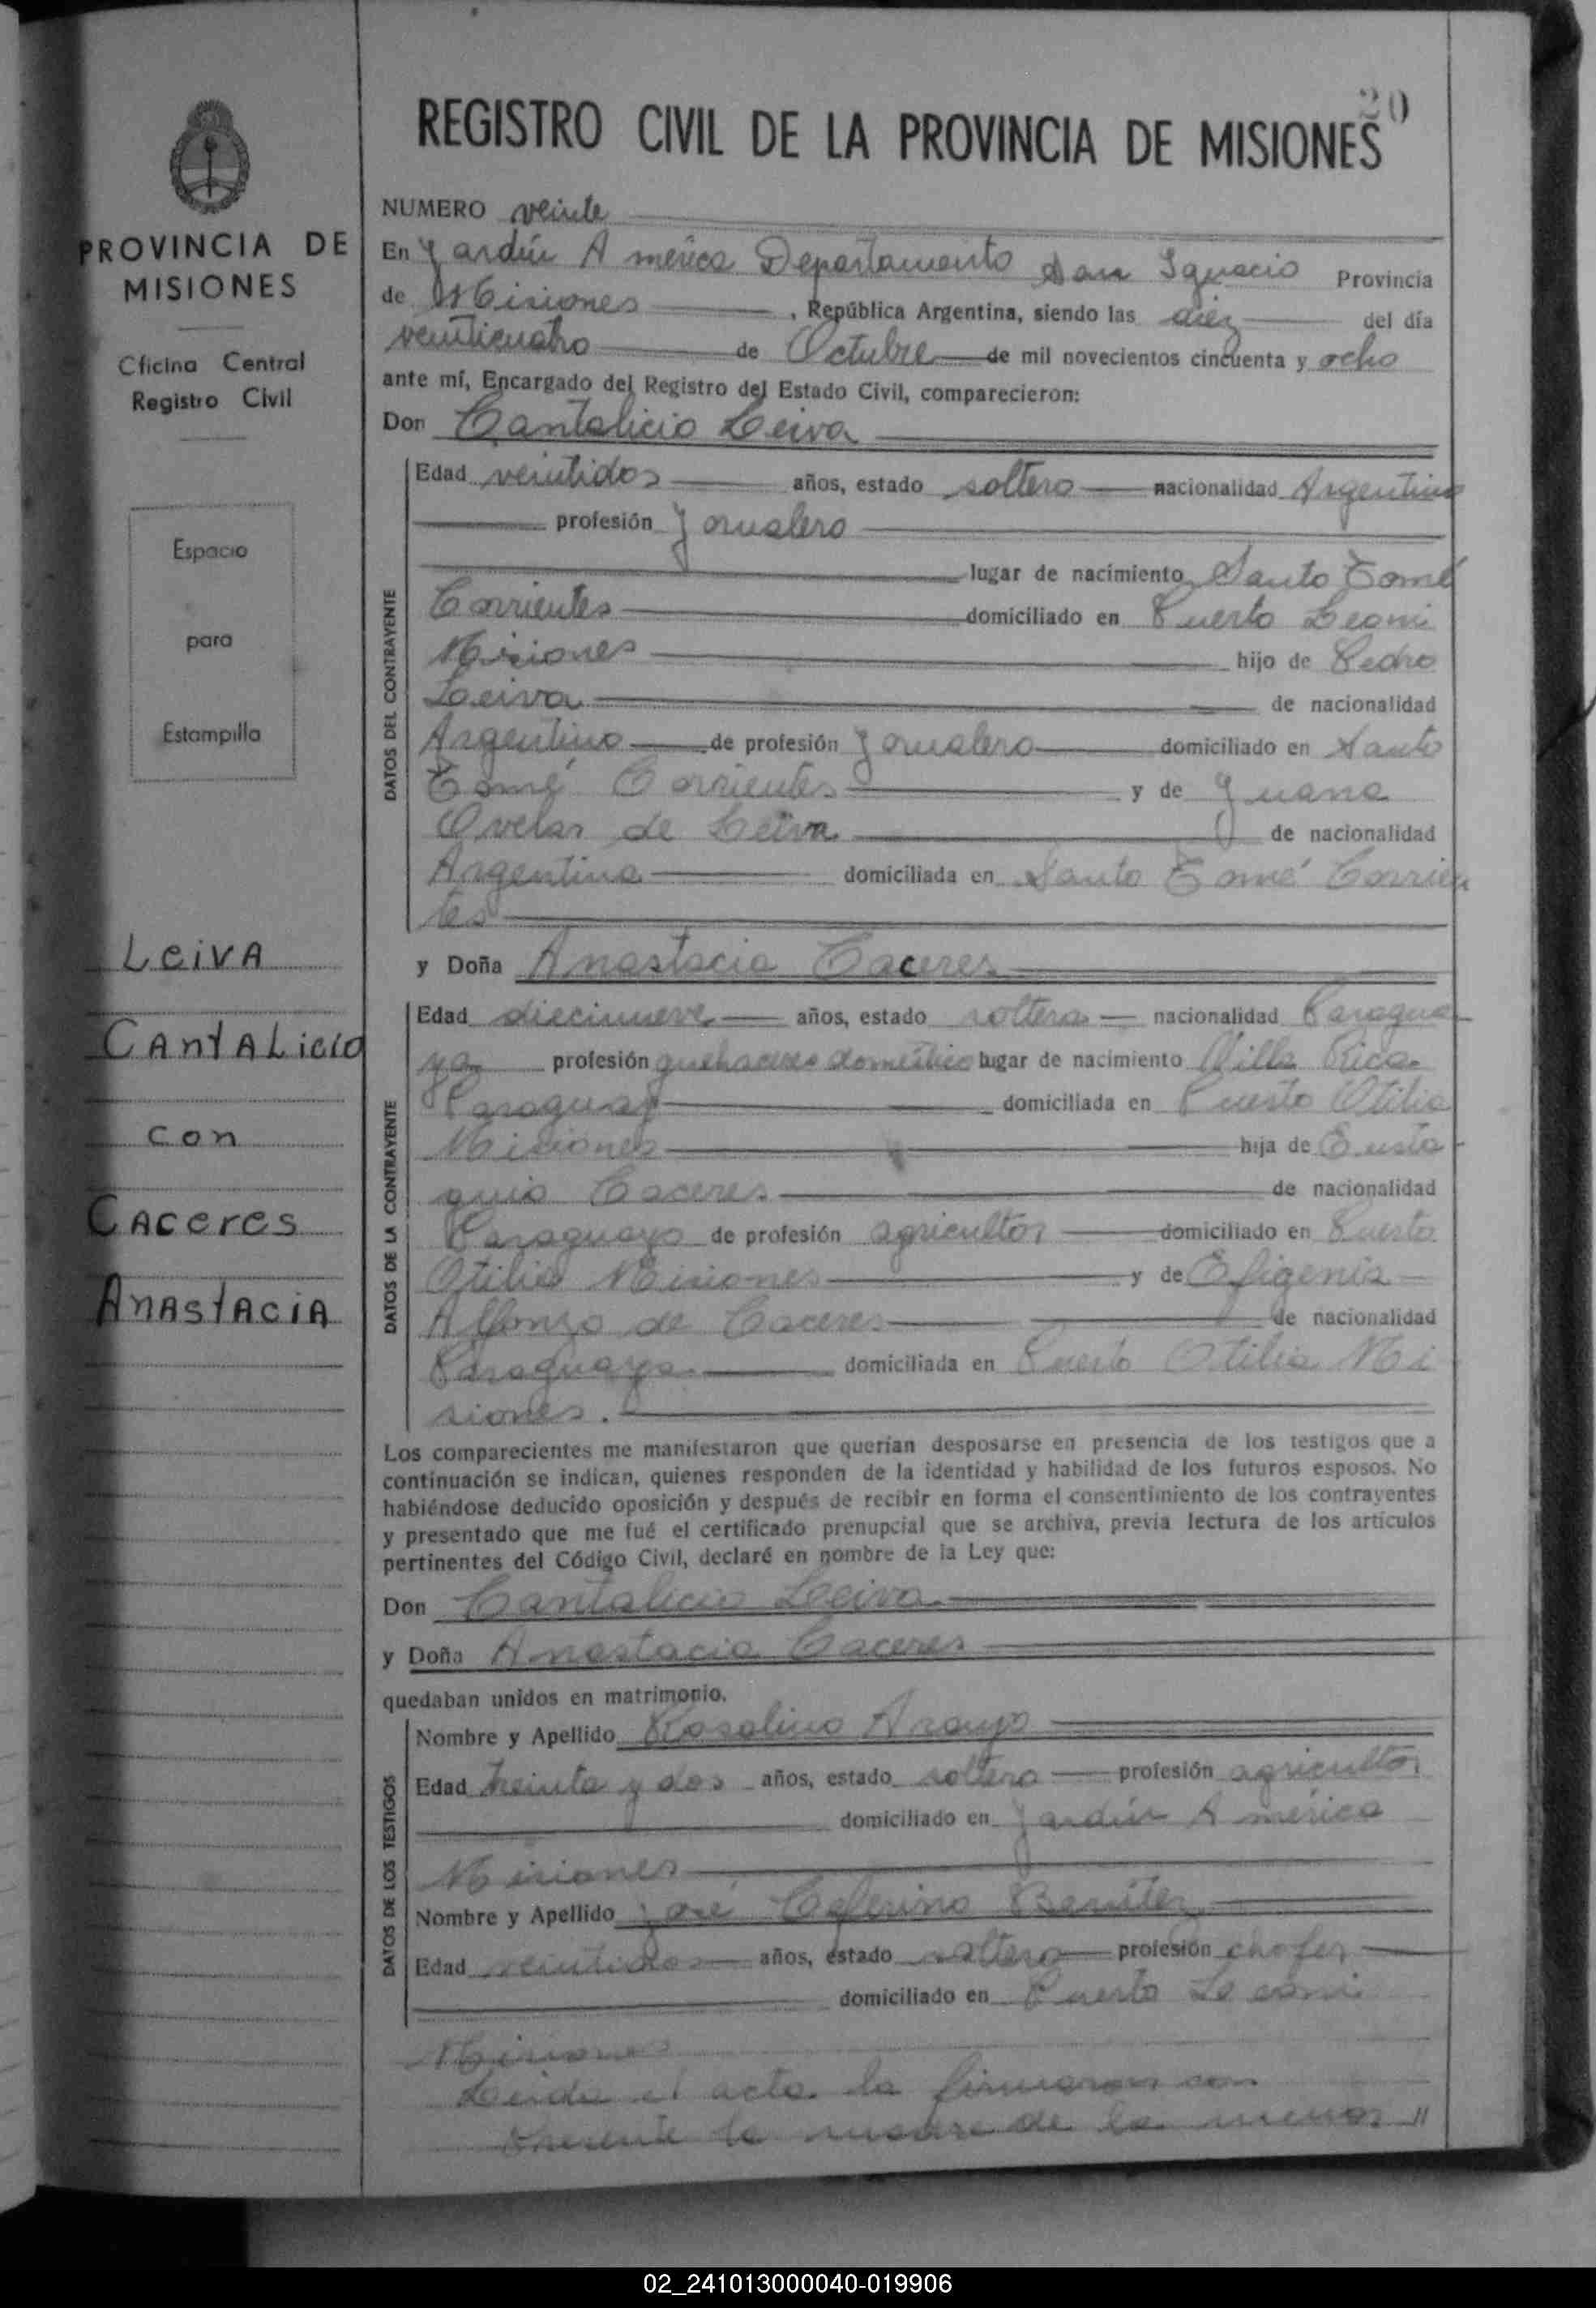 20
REGISTRO CIVIL DE LA PROVINCIA DE MISIONES
PROVINCIA DE
MISIONES
Oficina Central
Registro Civil
Espacio
para
Estampilla
LeivA
CAntALicio
con
CAceres
AnAstAciA
NUMERO veinte
En Jardín América Departamento San Ignacio Provincia
de Misiones , República Argentina, siendo las diez del día
veinticuatro de Octubre de mil novecientos cincuenta y ocho
ante mí, Encargado del Registro del Estado Civil, comparecieron:
Don Cantalicio Leiva
DATOS DEL CONTRAYENTE
Edad veintidos años, estado soltero nacionalidad Argentino
profesión Jornalero
lugar de nacimiento Santo Tomé
Corrientes domiciliado en Puerto Leoni
Misiones hijo de Pedro
Leiva de nacionalidad
Argentino de profesión Jornalero domiciliado en Santo
Tomé Corrientes y de Juana
Ovelar de Leiva de nacionalidad
Argentina domiciliada en Santo Tomé Corrien
tes
y Doña Anastacia Caceres
DATOS DE LA CONTRAYENTE
Edad diecinueve años, estado soltera nacionalidad Paragua
ya profesión quehaceres domésticos lugar de nacimiento Villa Rica
Paraguay domiciliada en Puerto Otilia
Misiones hija de Eusta
quio Caceres de nacionalidad
Paraguayo de profesión agricultor domiciliado en Puerto
Otilia Misiones y de Efigenia
Alfonzo de Caceres de nacionalidad
Paraguaya domiciliada en Puerto Otilia Mi
siones.
Los comparecientes me manifestaron que querían desposarse en presencia de los testigos que a
continuación se indican, quienes responden de la identidad y habilidad de los futuros esposos. No
habiéndose deducido oposición y después de recibir en forma el consentimiento de los contrayentes
y presentado que me fué el certificado prenupcial que se archiva, previa lectura de los artículos
pertinentes del Código Civil, declaré en nombre de la Ley que:
Don Cantalicio Leiva
y Doña Anastacia Caceres
quedaban unidos en matrimonio.
DATOS DE LOS TESTIGOS
Nombre y Apellido Rosalino Araujo
Edad treinta y dos años, estado soltero profesión agricultor
domiciliado en Jardín América
Misiones
Nombre y Apellido José Ceferino Benitez
Edad veintidos años, estado soltero profesión chofer
domiciliado en Puerto Leoni
Misiones
Leida el acta la firmaron con
presente la madre de la menor "
02_241013000040-019906